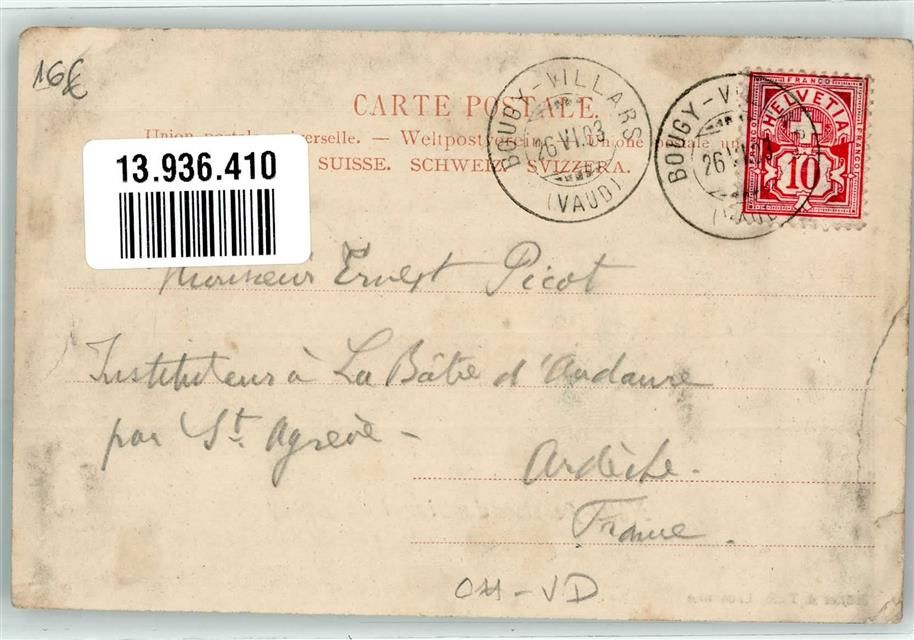 16€
CARTE POSTALE.
Union postale universelle. — Weltpostverein. — Unione postale un
SUISSE. SCHWEIZ. SVIZZERA.
13.936.410
BOUGY-VILLARS
26 VI.03
(VAUD)
BOUGY-VI
26 VI.03
(VAUD)
FRANCO
HELVETIA
FRANCO
10
Monsieur Ernest Picot
Instituteur à La Bâtie d'Andaure
par St. Agrève -
Ardèche.
France.
CH-VD